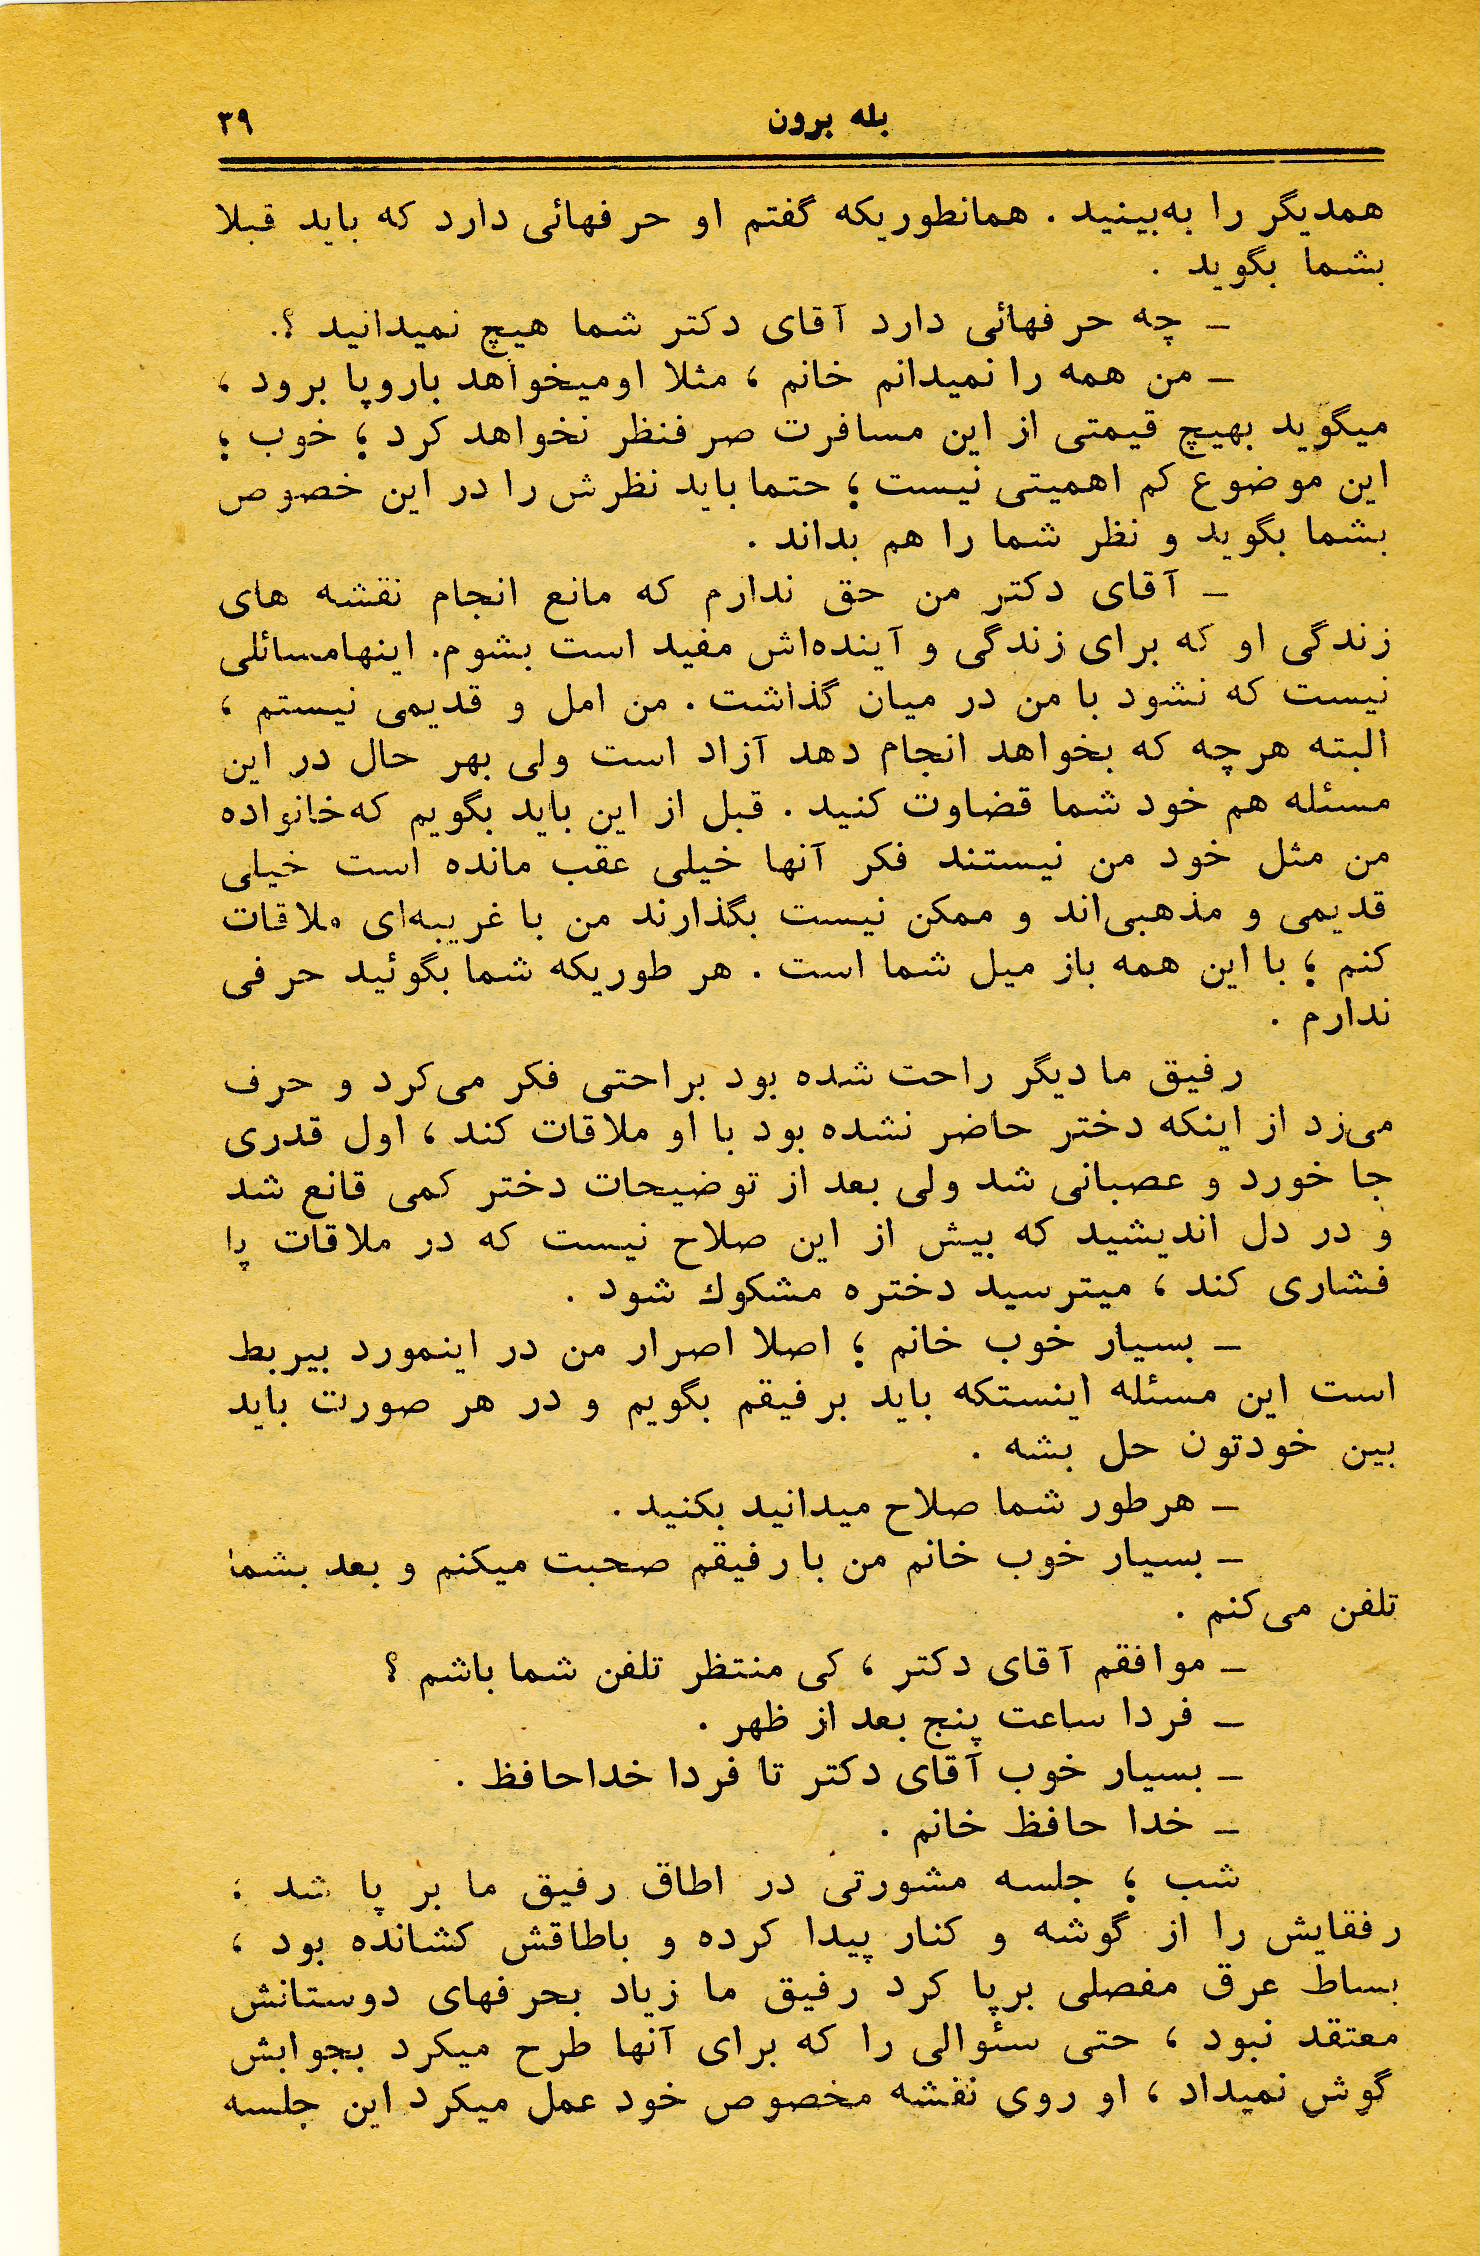 بله برون
۳۹
همدیگر را به‌بینید . همانطوریکه گفتم او حرفهائی دارد که باید قبلا
بشما بگوید .
ـ چه حرفهائی دارد آقای دکتر شما هیچ نمیدانید ؟.
ـ من همه را نمیدانم خانم ، مثلا اومیخواهد باروپا برود ،
میگوید بهیچ قیمتی از این مسافرت صرفنظر نخواهد کرد ؛ خوب ؛
این موضوع کم اهمیتی نیست ؛ حتما باید نظرش را در این خصوص
بشما بگوید و نظر شما را هم بداند .
ـ آقای دکتر من حق ندارم که مانع انجام نقشه های
زندگی او که برای زندگی و آینده‌اش مفید است بشوم. اینهامسائلی
نیست که نشود با من در میان گذاشت . من امل و قدیمی نیستم ،
البته هرچه که بخواهد انجام دهد آزاد است ولی بهر حال در این
مسئله هم خود شما قضاوت کنید . قبل از این باید بگویم که خانواده
من مثل خود من نیستند فکر آنها خیلی عقب مانده است خیلی
قدیمی و مذهبی‌اند و ممکن نیست بگذارند من با غریبه‌ای ملاقات
کنم ؛ با این همه باز میل شما است . هر طوریکه شما بگوئید حرفی
ندارم .
رفیق ما دیگر راحت شده بود براحتی فکر می‌کرد و حرف
می‌زد از اینکه دختر حاضر نشده بود با او ملاقات کند ، اول قدری
جا خورد و عصبانی شد ولی بعد از توضیحات دختر کمی قانع شد
و در دل اندیشید که بیش از این صلاح نیست که در ملاقات پا
فشاری کند ، میترسید دختره مشکوك شود .
ـ بسیار خوب خانم ؛ اصلا اصرار من در اینمورد بیربط
است این مسئله اینستکه باید برفیقم بگویم و در هر صورت باید
بین خودتون حل بشه .
ـ هرطور شما صلاح میدانید بکنید .
ـ بسیار خوب خانم من با رفیقم صحبت میکنم و بعد بشما
تلفن می‌کنم .
ـ موافقم آقای دکتر ، کی منتظر تلفن شما باشم ؟
ـ فردا ساعت پنج بعد از ظهر .
ـ بسیار خوب آقای دکتر تا فردا خداحافظ .
ـ خدا حافظ خانم .
شب ؛ جلسه مشورتی در اطاق رفیق ما بر پا شد ؛
رفقایش را از گوشه و کنار پیدا کرده و باطاقش کشانده بود ،
بساط عرق مفصلی برپا کرد رفیق ما زیاد بحرفهای دوستانش
معتقد نبود ، حتی سئوالی را که برای آنها طرح میکرد بجوابش
گوش نمیداد ، او روی نقشه مخصوص خود عمل میکرد این جلسه